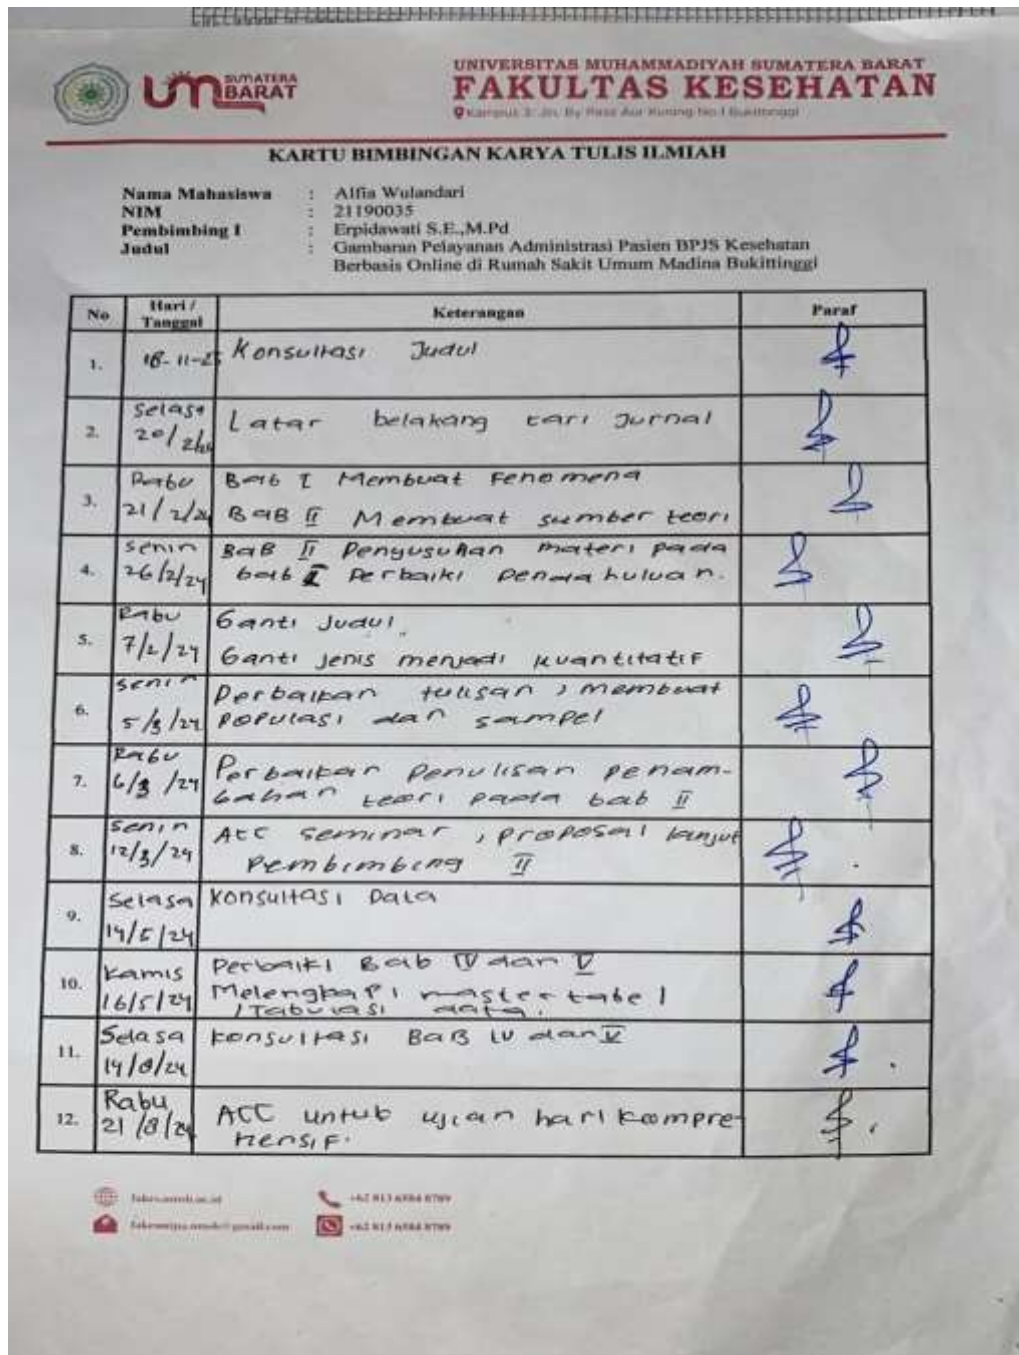 UM SUMATERA
BARAT
UNIVERSITAS MUHAMMADIYAH SUMATERA BARAT
FAKULTAS KESEHATAN
Kampus 3: Jln. By Pass Aur Kuning No.1 Bukittinggi
KARTU BIMBINGAN KARYA TULIS ILMIAH
Nama Mahasiswa : Alfia Wulandari
NIM : 21190035
Pembimbing I : Erpidawati S.E.,M.Pd
Judul : Gambaran Pelayanan Administrasi Pasien BPJS Kesehatan
Berbasis Online di Rumah Sakit Umum Madina Bukittinggi
No Hari / Tanggal Keterangan Paraf
1. Konsultasi Judul
2. Selasa Latar belakang cari Jurnal
20/2/24
3. Rabu Bab I Membuat Fenomena
21/2/24 BaB II Membuat sumber teori
4. Senin BaB II Penyusunan materi pada
26/2/24 bab I Perbaiki Pendahuluan.
5. Rabu Ganti Judul
7/2/24 Ganti jenis menjadi kuantitatif
6. Senin Perbaikan tulisan, membuat
5/3/24 Populasi dan sampel
7. Rabu Perbaikan Penulisan Penam-
6/3/24 bahan teori pada bab II
8. Senin ACC seminar, proposal lanjut
12/3/24 Pembimbing II
9. Selasa Konsultasi Data
14/5/24
10. Kamis Perbaiki Bab IV dan V
16/5/24 Melengkapi master tabel
/Tabulasi data.
11. Selasa Konsultasi BaB IV dan V
14/8/24
12. Rabu ACC untuk ujian hari kompre-
21/8/24 hensif.
+62 813 6584 8789
+62 813 6584 8789